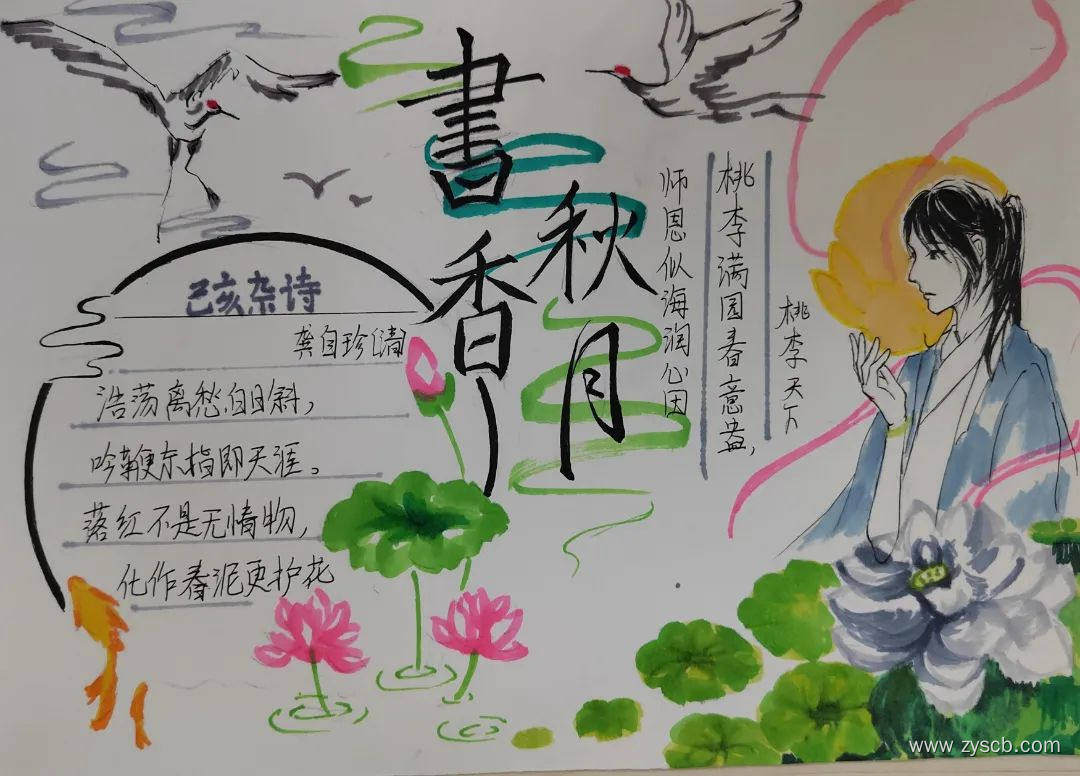 書香
秋月
己亥杂诗
龚自珍(清)
浩荡离愁白日斜，
吟鞭东指即天涯。
落红不是无情物，
化作春泥更护花
桃李天下
桃李满园春意盎，
师恩似海润心田
www.zyscb.com